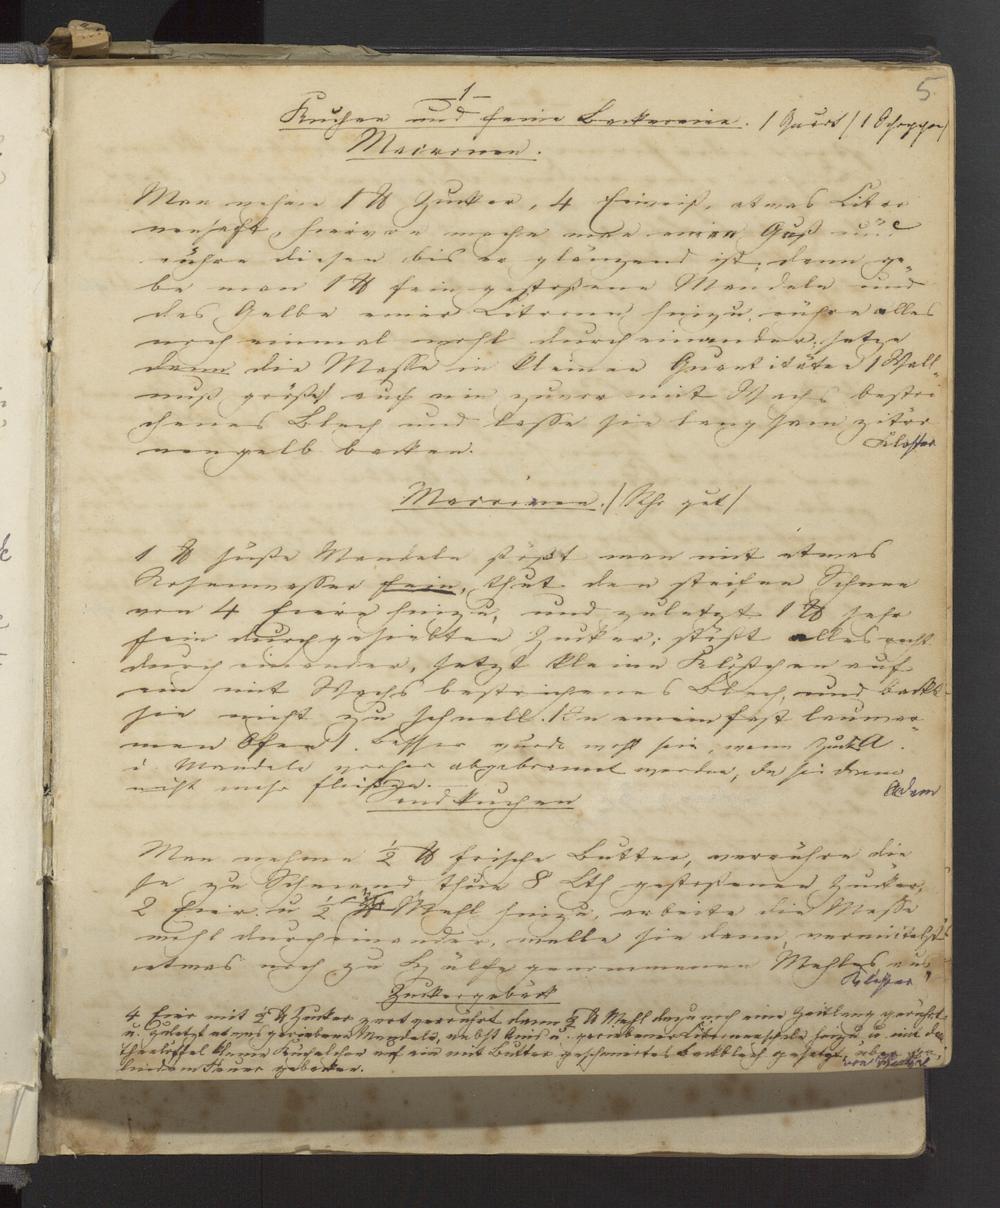 5.
-1-
Kuchen und feine Backereien. /1 Quart /1 Schoppen/
Macronen.
Man nehme 1 ℔ Zucker, 4 Eiweiß, etwas Citro
nensaft, hiervon mache man einen Guß und
rühre diesen bis er glänzend ist; dann ge„
be man 1 ℔ fein gestoßene Mandeln und
das Gelbe einer Citrone hinzu, rühre alles
noch einmal wohl durcheinander; setze
dann die Masse in kleinen Quantitäten /Wall„
nuß größe/ auf ein zuvor mit Wachs bestri
chenes Blech und lasse sie langsam zitro
nengelb backen.
Macronen. /Sehr gut/
1 ℔ süße Mandeln stößt man mit etwas
Rosenwasser fein, thut den steifen Schnee
von 4 Eiern hinzu, und zuletzt 1 ℔ sehr
fein durchgesiebten Zucker; stößt alles recht
durch einander, setzt kleine Klößchen auf
ein mit Wachs bestrichenes Blech, und backt
sie nicht zu schnell. In einem fast lauwar
men Ofen. Besser würde wohl sein, wenn Zucker
u. Mandeln vorher abgebrannt werden, da sie dann
nicht mehr fließen.
Adam
Sandkuchen
Man nehme ½ ℔ frische Butter, verrühre die
se zu Schmand, thue 8 Lth gestoßenen Zucker,
2 Eier u. ½ Mehl hinzu, arbeite die Masse
wohl durcheinander, welle sie dann, vermittelst
etwas noch zu Hülfe genommenen Mehles aus,
Zuckergebäck
4 Eier mit ½ ℔ Zucker zart gerührt dann ½ ℔ Mehl dazu noch eine Zeitlang gerührt
u. zuletzt etwas geriebene Mandeln, nebst Anis u. geriebener Citronenschale hinzu, u. mit dem
Theelöffel kleine Küchelcher auf ein mit Butter geschmiertes Backblech gesetzt, 
lindem Feuer gebacken.